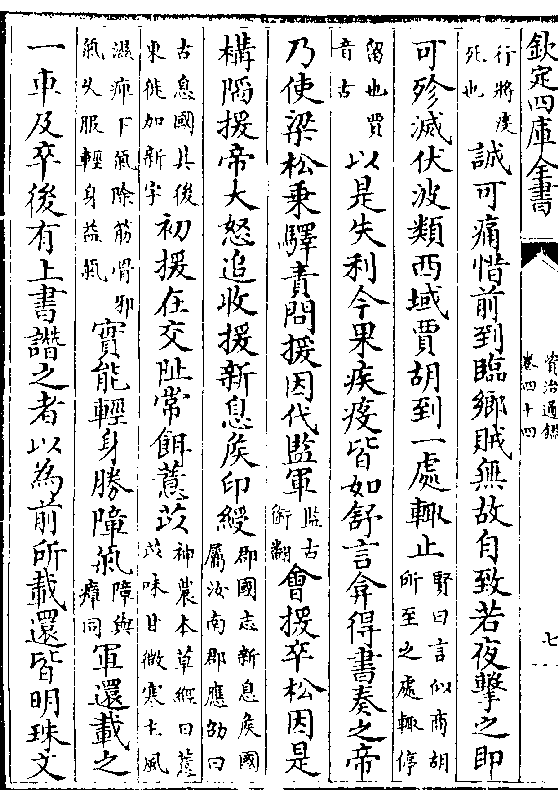 欽定四庫全書
資治通鑑
卷四十四
七
行將疫死也誠可痛惜前到臨鄉賊無故自致若夜擊之即
可殄滅伏波類西域賈胡到一處輒止賢曰言似商胡所至之處輒停
留也賈音古以是失利今果疾疫皆如舒言弇得書奏之帝
乃使梁松乘驛責問援因代監軍監古銜翻會援卒松因是
構隔援帝大怒追收援新息矦印綬郡國志新息矦國屬汝南郡應劭曰
古息國其後東徙加新字初援在交阯常餌薏苡神農本草經曰薏苡味甘微寒主風
濕痺下氣除筋骨邪氣久服輕身益氣實能輕身勝障氣障與瘴同軍還載之
一車及卒後有上書譖之者以為前所載還皆明珠文